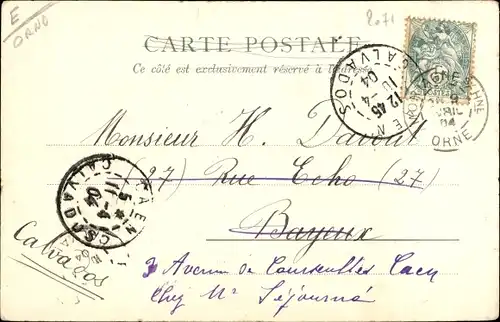 E
ORNE
2071
CARTE POSTALE
Ce côté est exclusivement réservé à l'adresse
CAEN CALVADOS
12 45
10 -4
04
ORNE
04
Monsieur H. Davout
(27) Rue Echo (27)
Bayeux
Calvados
CAEN CALVADOS
5
11 -4
04
3 Avenue de Courseulles Caen
Chez Mr Séjourné